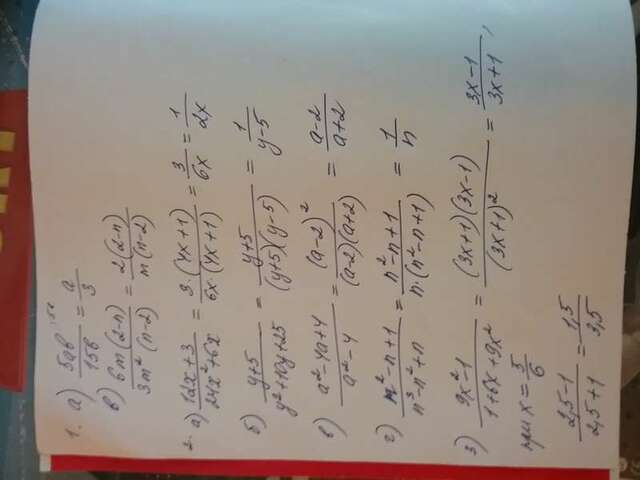 1. а) 5ав/15в = а/3
в) 6m(2-n)/3m²(n-2) = 2(2-n)/m(n-2)
2. а) 12x+3/24x²+6x = 3(4x+1)/6x·(4x+1) = 3/6x = 1/2x
б) y+5/y²+10y+25 = y+5/(y+5)(y-5) = 1/y-5
в) a²-4a+4/a²-4 = (a-2)²/(a-2)(a+2) = a-2/a+2
г) n²-n+1/n³-n²+n = n²-n+1/n·(n²-n+1) = 1/n
3) 9x²-1/1+6x+9x² = (3x+1)(3x-1)/(3x+1)² = 3x-1/3x+1,
при x = 5/6
2,5-1/2,5+1 = 1,5/3,5